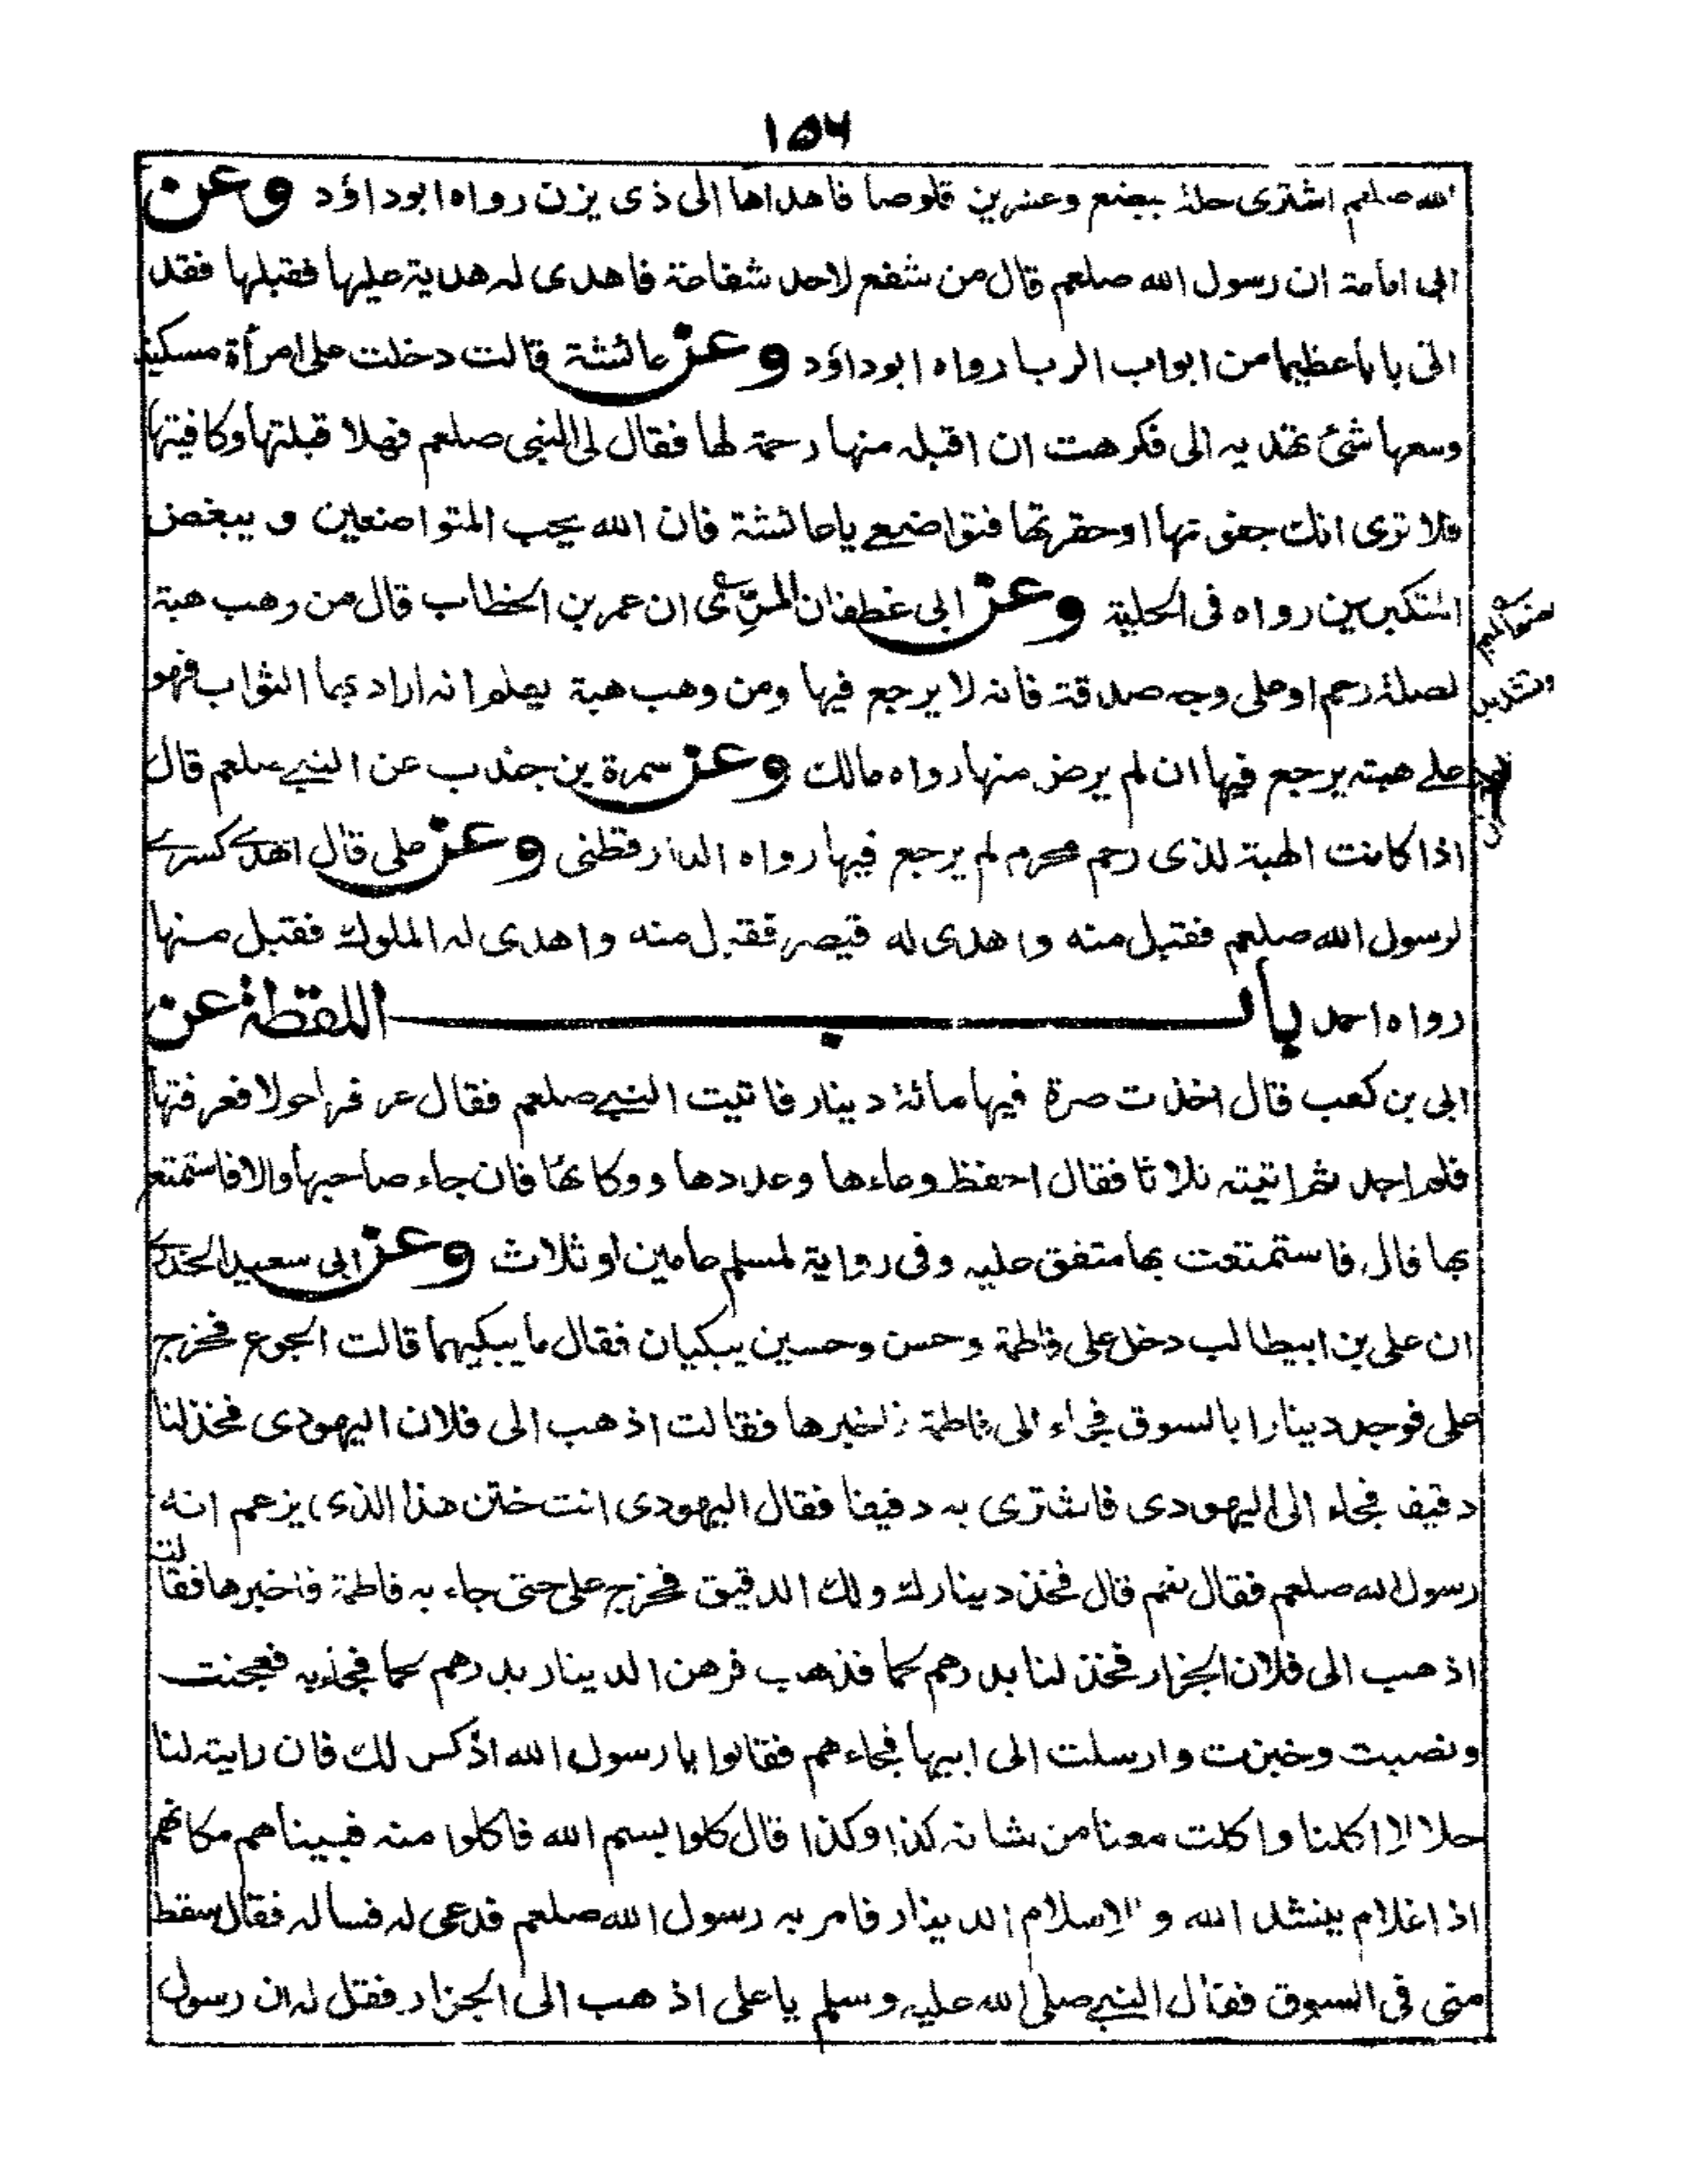 ۱۵۶
الله صلعم اشترى حلة ببضع وعشرين قلوصا فاهداها الى ذى يزن رواه ابوداؤد وعن
ابى امامة ان رسول الله صلعم قال من شفع لاحد شفاعة فاهدى له هدية عليها فقبلها فقد
اتى بابا عظيما من ابواب الربا رواه ابوداؤد وعن عائشة قالت دخلت على امرأة مسكينة
ومعها شئ تهديه الى فكرهت ان اقبله منها رحمة لها فقال لى النبى صلعم فهلا قبلتها وكافيتها
فلا ترى انك حقرتها فتواضعى يا عائشة فان الله يحب المتواضعين و يبغض
المستكبرين رواه فى الحلية وعن ابى غطفان المرى ان عمر بن الخطاب قال من وهب هبة
لصلة رحم او على وجه صدقة فانه لا يرجع فيها ومن وهب هبة يعلم انه اراد بها الثواب فهو
على هبته يرجع فيها ان لم يرض منها رواه مالك وعن سمرة بن جندب عن النبى صلعم قال
اذا كانت الهبة لذى رحم محرم لم يرجع فيها رواه الدارقطنى وعن على قال اهدى كسرى
لرسول الله صلعم فقبل منه واهدى له قيصر فقبل منه واهدى له الملوك فقبل منها
رواه احمد باب اللقطة عن
ابى بن كعب قال اخذت صرة فيها مائة دينار فاتيت النبى صلعم فقال عرفها حولا فعرفتها
فلم اجد ثم اتيته ثلاثا فقال احفظ وعاءها وعددها ووكاءها فان جاء صاحبها والا فاستمتع
بها قال فاستمتعت بها متفق عليه وفى رواية لمسلم عامين او ثلاث وعن ابى سعيد الخدرى
ان على بن ابيطالب دخل على فاطمة وحسن وحسين يبكيان فقال ما يبكيهما قالت الجوع فخرج
على فوجد دينارا بالسوق فجاء الى فاطمة فاخبرها فقالت اذهب الى فلان اليهودى فخذ لنا
دقيقا فجاء الى اليهودى فاشترى به دقيقا فقال اليهودى انت ختن هذا الذى يزعم انه
رسول الله صلعم فقال نعم قال فخذ دينارك ولك الدقيق فخرج على حتى جاء به فاطمة فاخبرها فقالت
اذهب الى فلان الجزار فخذ لنا بدرهم لحما فذهب فرهن الدينار بدرهم لحما فجاء به فعجنت
ونصبت وخبزت وارسلت الى ابيها فجاءهم فقالوا يا رسول الله اذكر لك فان رايته لنا
حلالا اكلنا واكلت معنا من شانه كذا وكذا قال كلوا بسم الله فاكلوا منه فبيناهم مكانهم
اذا غلام ينشد الله والاسلام الدينار فامر به رسول الله صلعم فدعى له فسأله فقال سقط
منى فى السوق فقال النبى صلى الله عليه وسلم يا على اذهب الى الجزار فقل له ان رسول